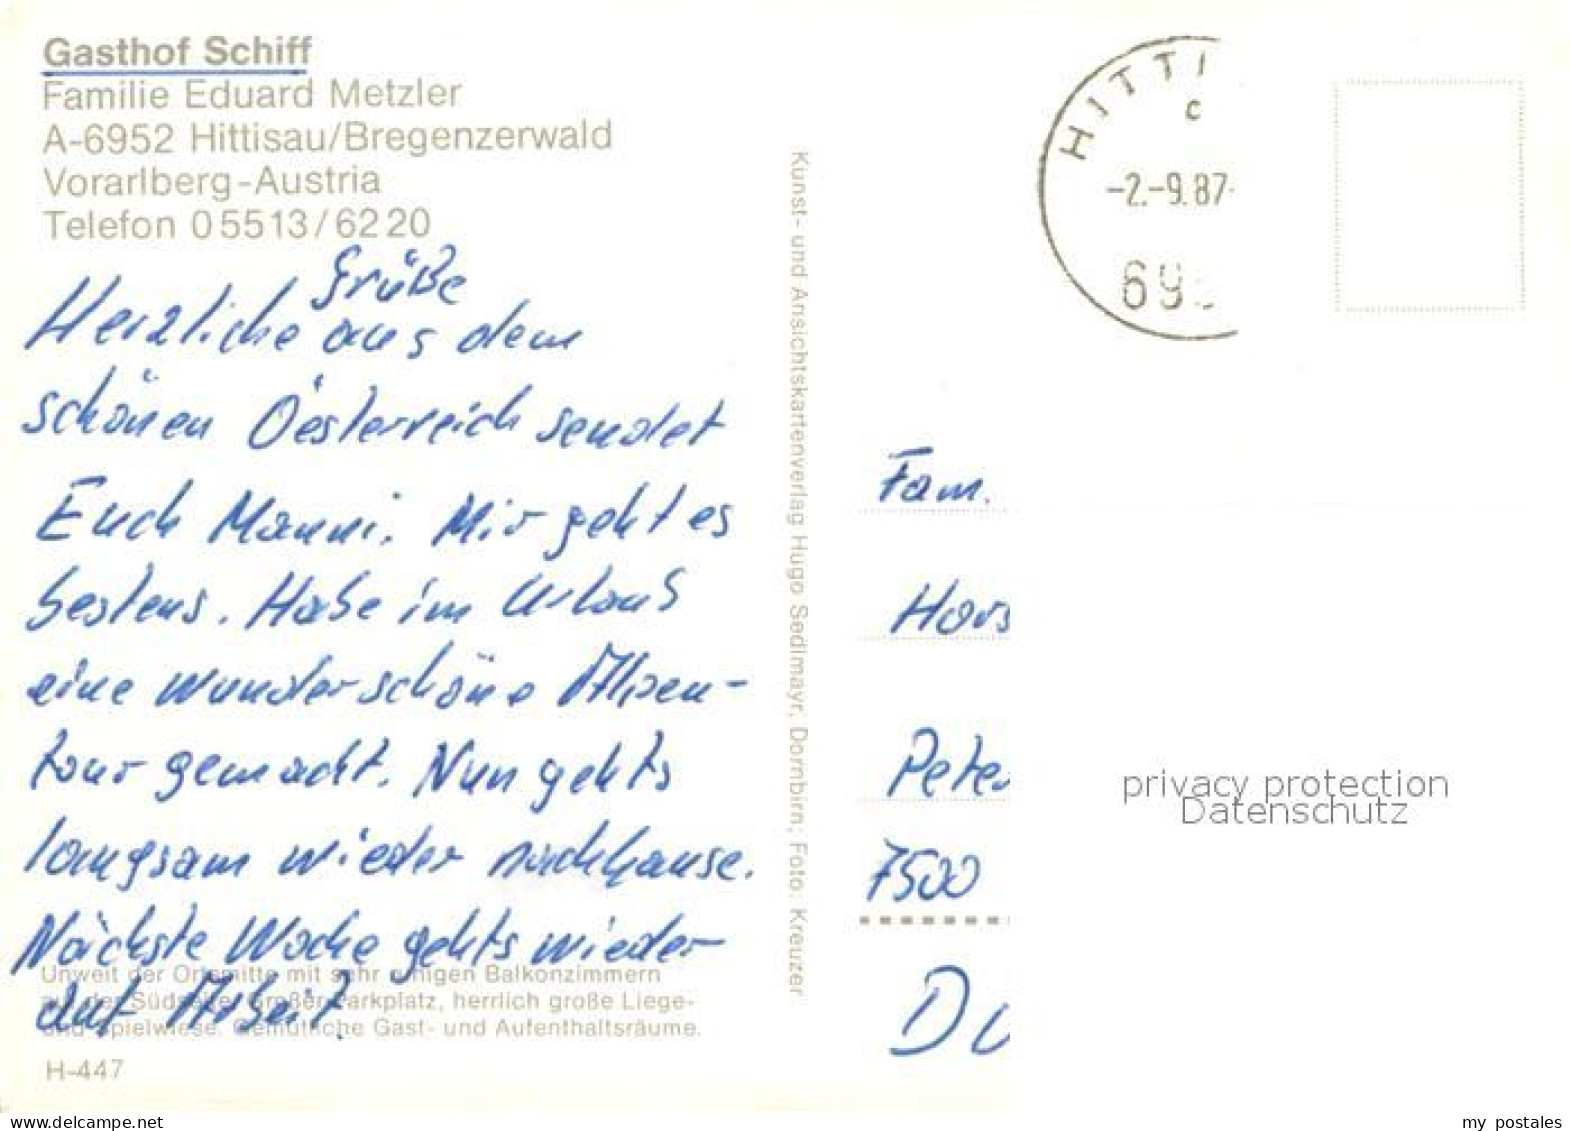 Gasthof Schiff
Familie Eduard Metzler
A-6952 Hittisau/Bregenzerwald
Vorarlberg-Austria
Telefon 05513/6220
Grüße
Herzliche aus dem
schönen Oesterreich sendet
Euch Manni. Mir geht es
bestens. Habe im Urlaub
eine wunderschöne Alpen-
tour gemacht. Nun gehts
langsam wieder nachhause.
Nächste Woche gehts wieder
auf Arbeit.
Unweit der Ortsmitte mit sehr ruhigen Balkonzimmern
auf der Südseite. Großer Parkplatz, herrlich große Liege-
und Spielwiese. Gemütliche Gast- und Aufenthaltsräume.
H-447
Kunst- und Ansichtskartenverlag Hugo Sedlmayr, Dornbirn; Foto: Kreuzer
HITTI
c
-2.-9.87-
69
Fam.
Hors
Peter
7500
DU
privacy protection
Datenschutz
delcampe.net
my_postales